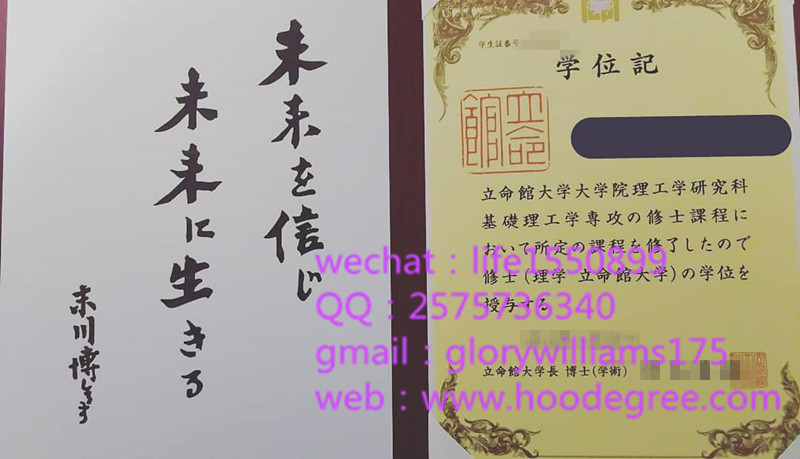 未来を信じ
未来に生きる
末川博
学生証番号
学位記
立命館
立命館大学大学院理工学研究科
基礎理工学専攻の修士課程に
おいて所定の課程を修了したので
修士(理学 立命館大学)の学位を
授与する
立命館大学長 博士(学術)
wechat：life1550899
QQ：2575736340
gmail：glorywilliams175
web：www.hoodegree.com